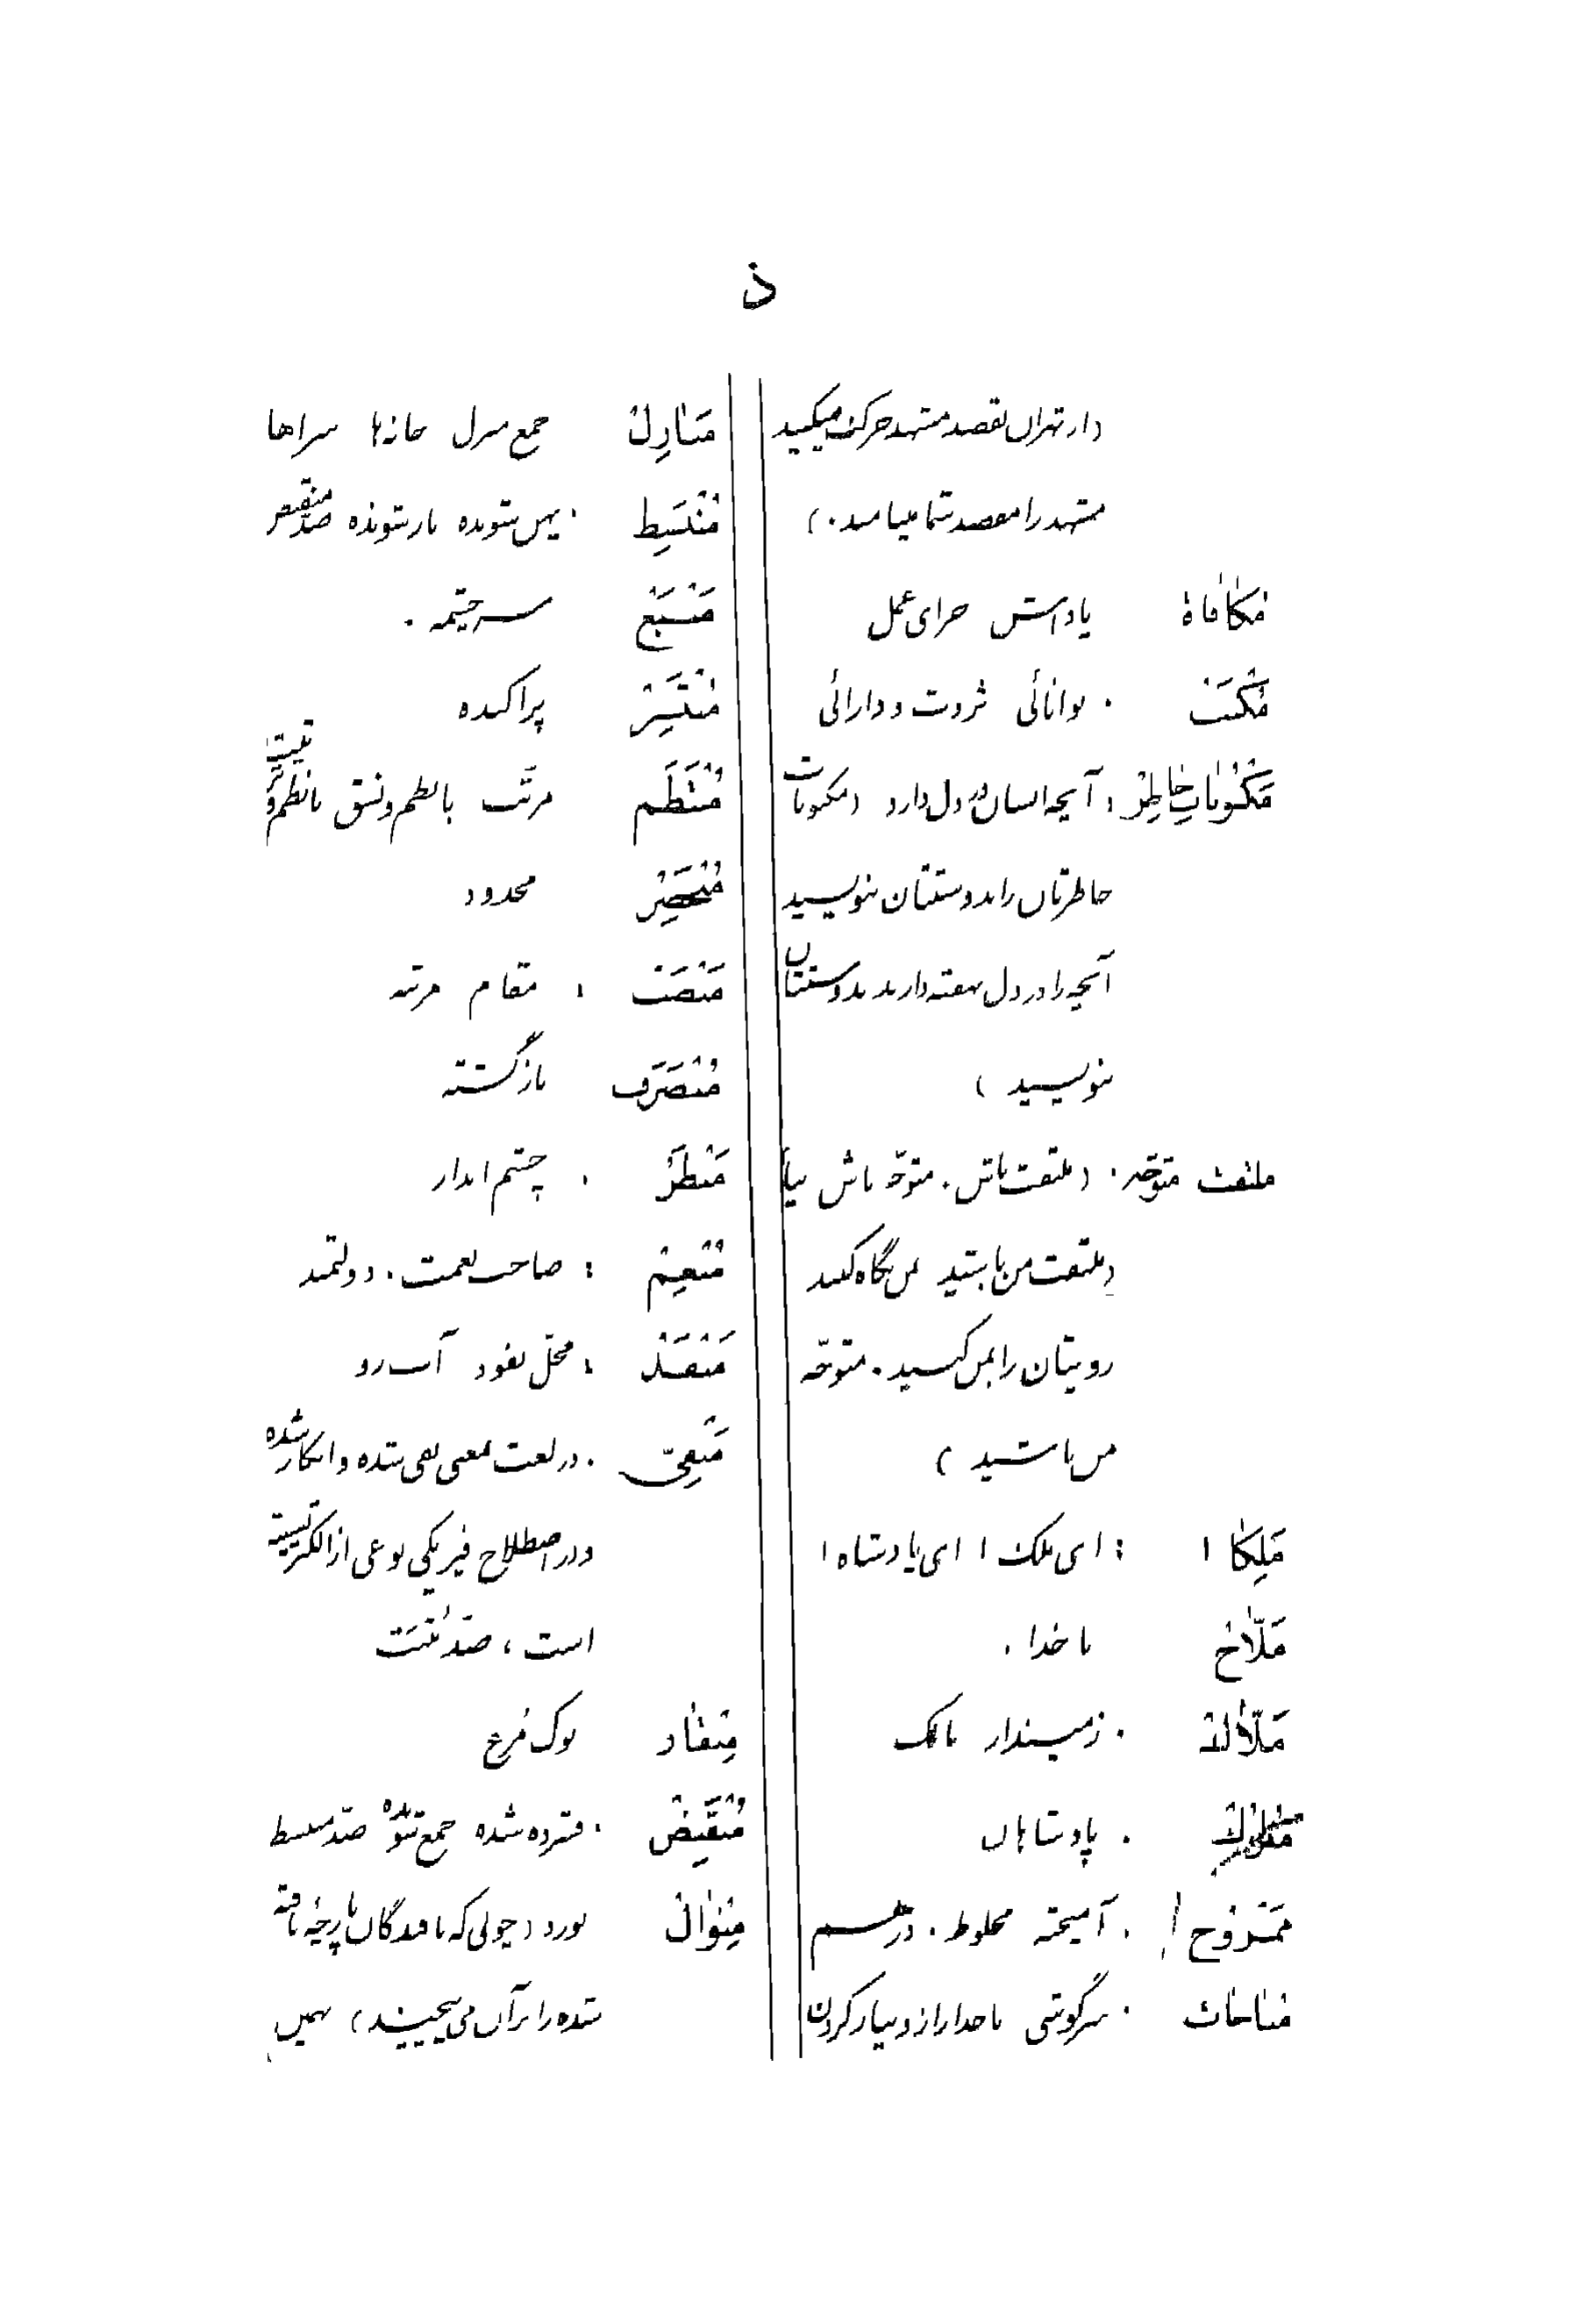 ذ
(از تهران بقصد مشهد حرکت میکنید
مشهد را مقصد شما مینامند.)
مُکافاة پاداش جزای عمل
مُکْنَت : توانائی ثروت و دارائی
مَکْنُوناتِ خاطِر : آنچه انسان در دل دارد (مکنونات
خاطرتان را بدوستتان بنویسید
آنچه را در دل نهفته دارید بدوستتان
بنویسید)
ملتفت متوجّه . (ملتفت باش . متوجّه باش بیا
(ملتفت من باشید بمن نگاه کنید
رویتان را بمن کنید . متوجّه
من باشید)
مَلِکا ! : ای ملک ! ای پادشاه !
مَلّاح ناخدا .
مَلّاک : زمیندار مالک
مُلُوک : پادشاهان
مَمْزُوج : آمیخته مخلوط . درهم
مُناجات : سرگوشی با خدا راز و نیاز کردن
مَنازِل جمع منزل خانه‌ها سراها
مُنْبَسِط : پهن شونده باز شونده ضدّ منقبض
مَنْبَع سرچشمه .
مُنْتَشِر پراکنده
مُنْتَظَم مرتّب با نظم و نسق با نظم و ترتیب
مُنْحَصِر محدود
مَنْصَب : مقام مرتبه
مُنْصَرِف بازگشته
مَنْظَر : چشم انداز
مُنْعِم : صاحب نعمت . دولتمند
مَنْفَذ : محلّ نفوذ آب رو
مَنْفِیّ : در لغت بمعنی نفی شده و انکار شده
و در اصطلاح فیزیکی نوعی از الکتریسیته
است ، ضدّ مُثبَت
مِنْقاد نوک مُرغ
مُنْقَبِض : فشرده شده جمع شونده ضدّ منبسط
مِنْوال نورد (چوبی که بافندگان پارچهٔ بافته
شده را بر آن می‌پیچند) بهمین